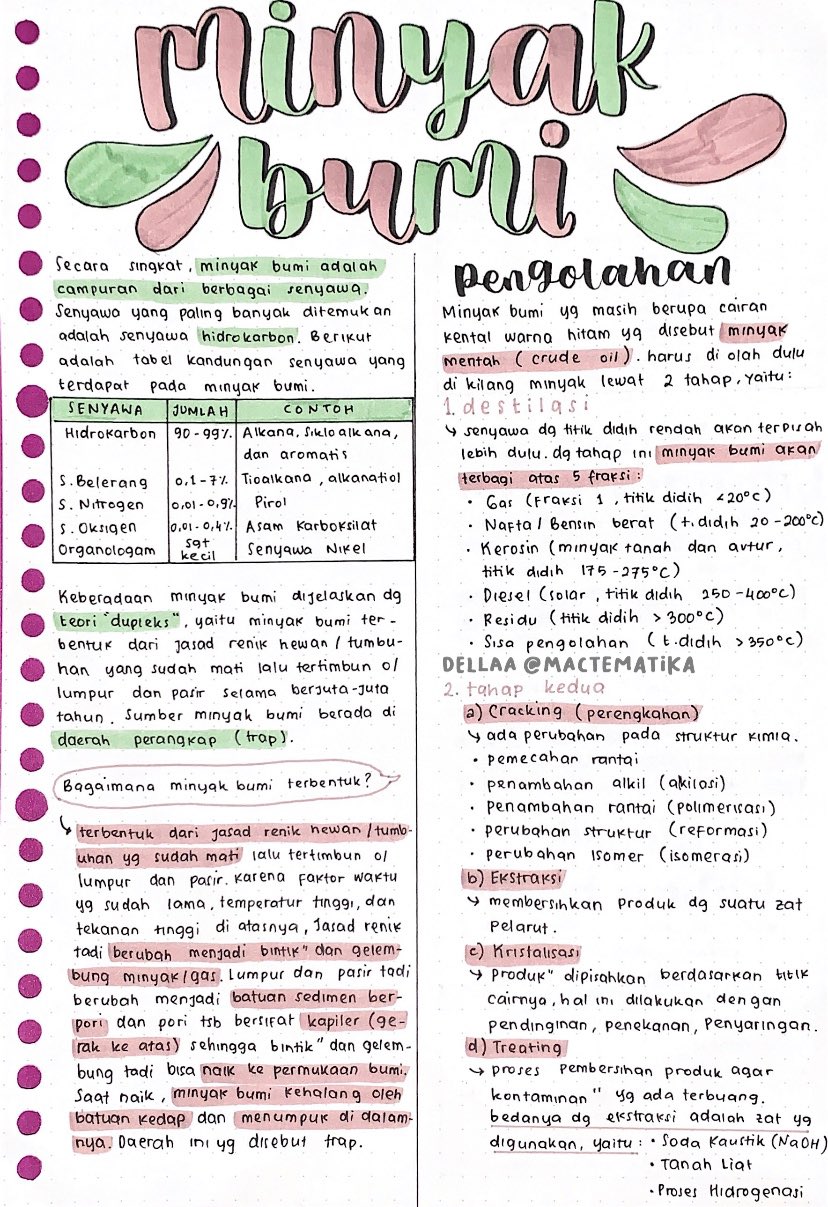 minyak
bumi
Secara singkat, minyak bumi adalah
campuran dari berbagai senyawa.
Senyawa yang paling banyak ditemukan
adalah senyawa hidrokarbon. Berikut
adalah tabel kandungan senyawa yang
terdapat pada minyak bumi.
SENYAWA JUMLAH CONTOH
Hidrokarbon 90-99% Alkana, Sikloalkana,
dan aromatis
S. Belerang 0,1-7% Tioalkana, alkanatiol
S. Nitrogen 0,01-0,9% Pirol
S. Oksigen 0,01-0,4% Asam Karboksilat
Organologam sgt kecil Senyawa Nikel
Keberadaan minyak bumi dijelaskan dg
teori "dupleks", yaitu minyak bumi ter-
bentuk dari jasad renik hewan / tumbu-
han yang sudah mati lalu tertimbun o/
lumpur dan pasir selama berjuta-juta
tahun. Sumber minyak bumi berada di
daerah perangkap (trap).
Bagaimana minyak bumi terbentuk?
↳ terbentuk dari jasad renik hewan / tumb-
uhan yg sudah mati lalu tertimbun o/
lumpur dan pasir. Karena faktor waktu
yg sudah lama, temperatur tinggi, dan
tekanan tinggi di atasnya, Jasad renik
tadi berubah menjadi bintik" dan gelem-
bung minyak/gas. Lumpur dan pasir tadi
berubah menjadi batuan sedimen ber-
pori dan pori tsb bersifat kapiler (ge-
rak ke atas) sehingga bintik" dan gelem-
bung tadi bisa naik ke permukaan bumi.
Saat naik, minyak bumi kehalang oleh
batuan kedap dan menumpuk di dalam-
nya. Daerah ini yg disebut trap.
pengolahan
Minyak bumi yg masih berupa cairan
kental warna hitam yg disebut minyak
mentah (crude oil). harus di olah dulu
di kilang minyak lewat 2 tahap, yaitu:
1. destilasi
↳ senyawa dg titik didih rendah akan terpisah
lebih dulu. dg tahap ini minyak bumi akan
terbagi atas 5 fraksi:
• Gas (Fraksi 1, titik didih <20°C)
• Nafta / Bensin berat (t.didih 20-200°C)
• Kerosin (minyak tanah dan avtur,
titik didih 175-275°C)
• Diesel (solar, titik didih 250-400°C)
• Residu (titik didih >300°C)
• Sisa pengolahan (t.didih >350°C)
DELLAA @MACTEMATIKA
2. tahap kedua
a) Cracking (perengkahan)
↳ ada perubahan pada struktur kimia.
• pemecahan rantai
• penambahan alkil (alkilasi)
• Penambahan rantai (polimerisasi)
• perubahan struktur (reformasi)
• perubahan Isomer (isomerasi)
b) Ekstraksi
↳ membersihkan produk dg suatu zat
Pelarut.
c) Kristalisasi
↳ Produk" dipisahkan berdasarkan titik
cairnya, hal ini dilakukan dengan
pendinginan, penekanan, Penyaringan.
d) Treating
↳ proses pembersihan produk agar
kontaminan" yg ada terbuang.
bedanya dg ekstraksi adalah zat yg
digunakan, yaitu: • Soda Kaustik (NaOH)
• Tanah Liat
• Proses Hidrogenasi